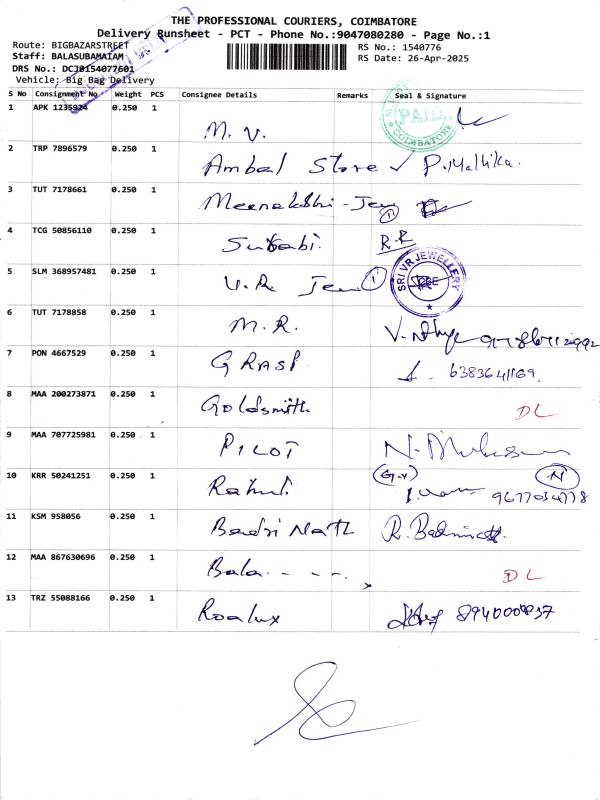 THE PROFESSIONAL COURIERS, COIMBATORE
Delivery Runsheet - PCT - Phone No.:9047080280 - Page No.:1
Route: BIGBAZARSTREET RS No.: 1540776
Staff: BALASUBAMAIAM RS Date: 26-Apr-2025
DRS No.: DCJ0154077601
Vehicle: Big Bag Delivery
S No Consignment No Weight PCS Consignee Details Remarks Seal & Signature
1 APK 1235924 0.250 1 M. V. PAID COIMBATORE
2 TRP 7896579 0.250 1 Ambal Store P. Mallika.
3 TUT 7178661 0.250 1 Meenakshi - Jew 1
4 TCG 50856110 0.250 1 R.R
5 SLM 368957481 0.250 1 V. R. Jew 1 SRI VR JEWELLERY CBE
6 TUT 7178858 0.250 1 M. R.
7 PON 4667529 0.250 1 GRASP 6383641169
8 MAA 200273871 0.250 1 Goldsmith DL
9 MAA 707725981 0.250 1 PILOT
10 KRR 50241251 0.250 1 (G.V) N 9677034778
11 KSM 958056 0.250 1 Badri Nath
12 MAA 867630696 0.250 1 Bala - - - - . DL
13 TRZ 55088166 0.250 1 Roalux